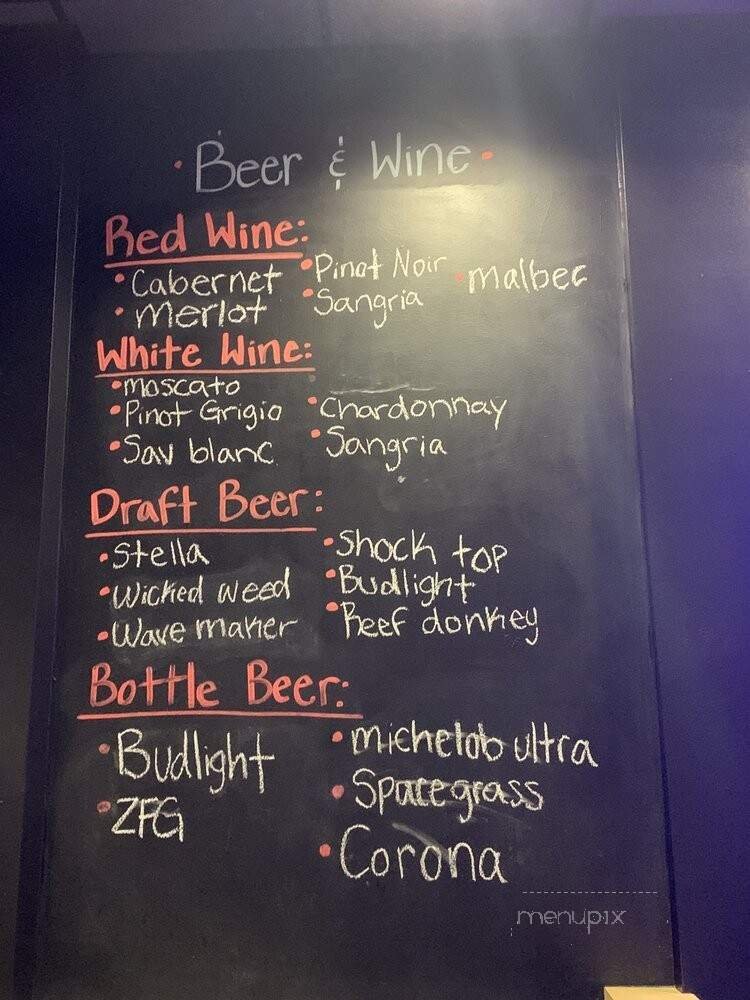 · Beer & Wine ·
Red Wine:
• Cabernet • Pinot Noir • malbec
• merlot • Sangria
White Wine:
• moscato
• Pinot Grigio • Chardonnay
• Sav blanc • Sangria
Draft Beer:
• Stella • Shock top
• Wicked weed • Budlight
• Wave maker • Reef donkey
Bottle Beer:
• Budlight • michelob ultra
• ZFG • Spacegrass
• Corona
menupix